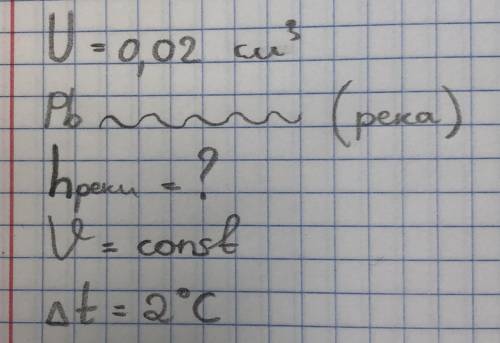 U = 0,02 см³
Pb (река)
hреки = ?
V = const
Δt = 2°C